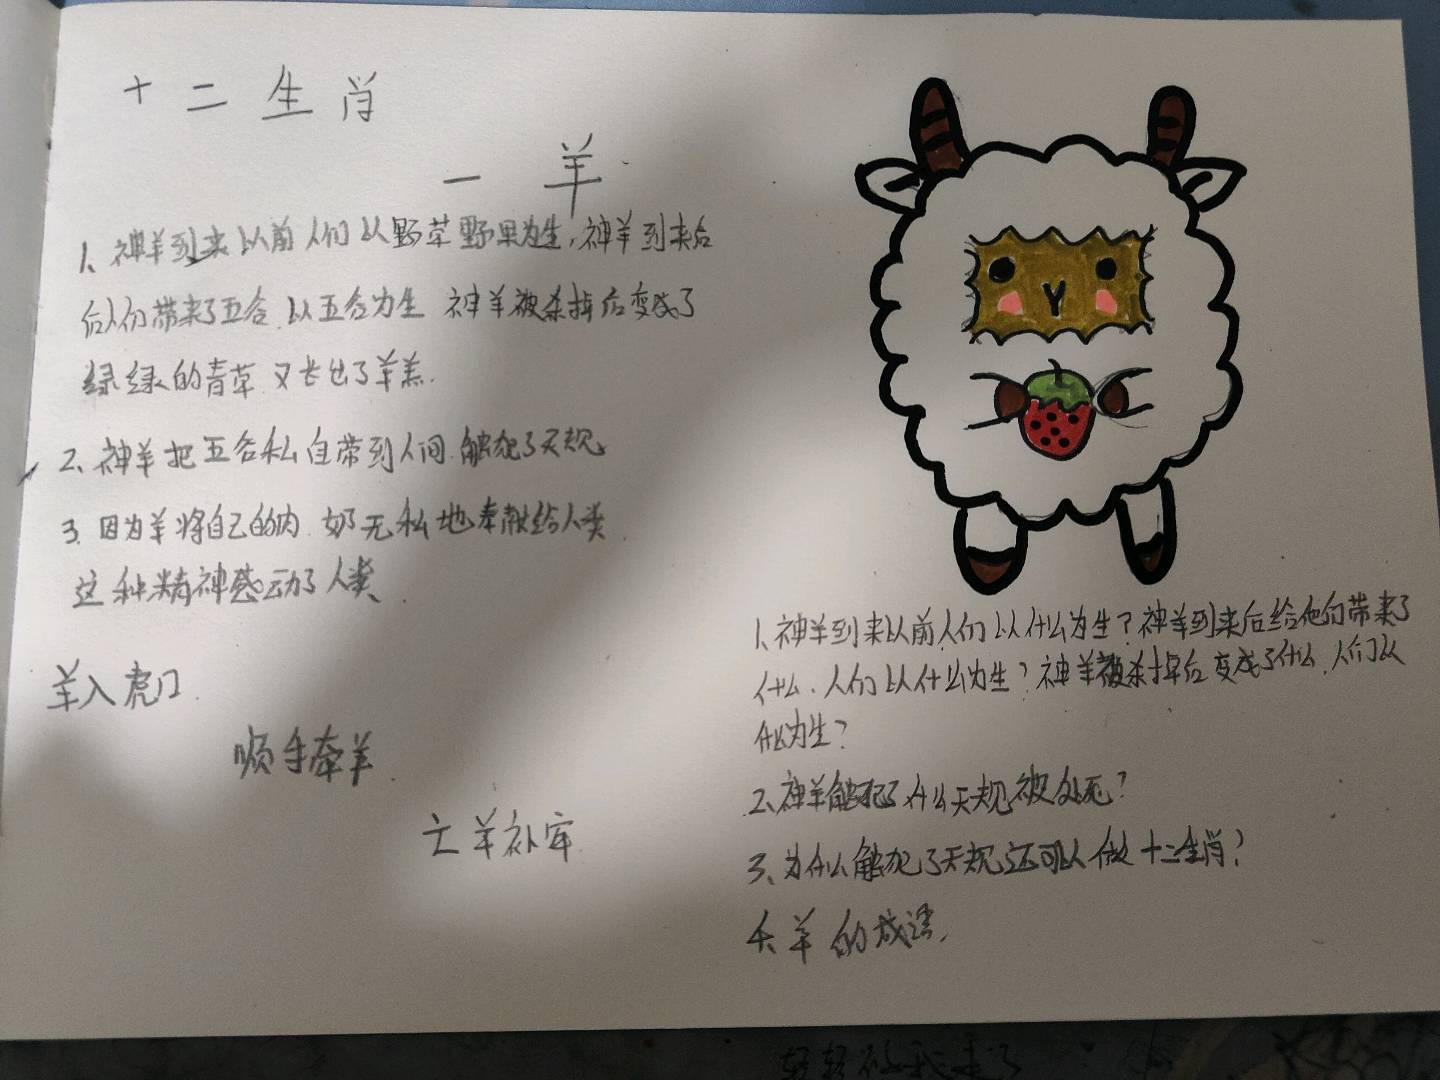 十二生肖
一羊
1、神羊到来以前人们以野草野果为生,神羊到来后
们带来了五谷.以五谷为生 神羊被杀掉后变成了
绿绿的青草 又长出了羊羔.
2、神羊把五谷私自带到人间.触犯了天规
3.因为羊将自己的肉.奶无私地奉献给人类.
这种精神感动了人类.
羊入虎口.
顺手牵羊.
亡羊补牢.
1、神羊到来以前人们以什么为生?神羊到来后给他们带来了
什么.人们以什么为生?神羊被杀掉后变成了什么.人们以
什么为生?
2、神羊触犯了什么天规被处死?
3、为什么触犯了天规还可以做十二生肖?
羊的成语.
轻轻 我走了